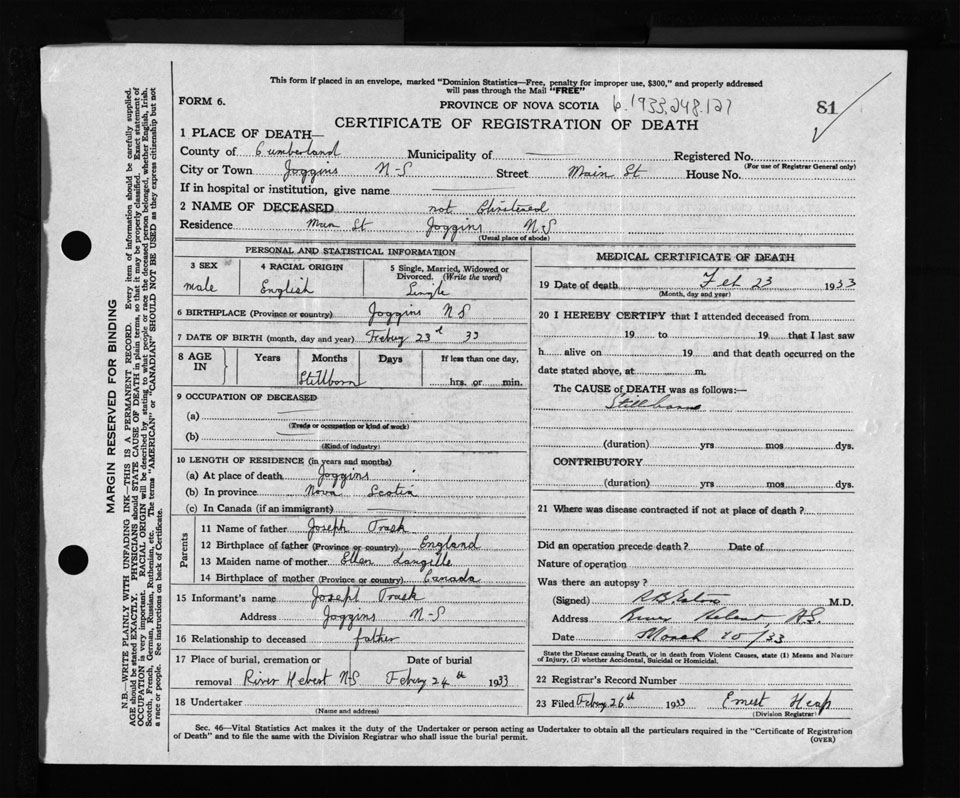 This form if placed in an envelope, marked "Dominion Statistics—Free, penalty for improper use, $300," and properly addressed
will pass through the Mail "FREE"
FORM 6.
PROVINCE OF NOVA SCOTIA 6.1933.248.127
81
CERTIFICATE OF REGISTRATION OF DEATH
1 PLACE OF DEATH—
County of Cumberland Municipality of Registered No.
(For use of Registrar General only)
City or Town Joggins N-S Street Main St House No.
If in hospital or institution, give name
2 NAME OF DECEASED not Christened
Residence Main St Joggins N.S.
(Usual place of abode)
PERSONAL AND STATISTICAL INFORMATION
3 SEX 4 RACIAL ORIGIN 5 Single, Married, Widowed or
Divorced. (Write the word)
male English Single
6 BIRTHPLACE (Province or country) Joggins N S
7 DATE OF BIRTH (month, day and year) Febuy 23rd 33
8 AGE IN Years Months Days If less than one day,
Stillborn hrs. or min.
9 OCCUPATION OF DECEASED
(a)
(Trade or occupation or kind of work)
(b)
(Kind of industry)
10 LENGTH OF RESIDENCE (in years and months)
(a) At place of death Joggins
(b) In province Nova Scotia
(c) In Canada (if an immigrant)
Parents
11 Name of father Joseph Trask
12 Birthplace of father (Province or country) England
13 Maiden name of mother Ellen Langille
14 Birthplace of mother (Province or country) Canada
15 Informant's name Joseph Trask
Address Joggins N-S
16 Relationship to deceased father
17 Place of burial, cremation or Date of burial
removal River Hebert N-S Febuy 24th 1933
18 Undertaker
(Name and address)
MEDICAL CERTIFICATE OF DEATH
19 Date of death Feb 23 1933
(Month, day and year)
20 I HEREBY CERTIFY that I attended deceased from
19 to 19 that I last saw
h alive on 19 and that death occurred on the
date stated above, at m.
The CAUSE of DEATH was as follows:—
Stillborn
(duration) yrs mos dys.
CONTRIBUTORY
(duration) yrs mos dys.
21 Where was disease contracted if not at place of death?
Did an operation precede death? Date of
Nature of operation
Was there an autopsy?
(Signed) M.D.
Address River Hebert, N.S.
Date March /33
State the Disease causing Death, or in death from Violent Causes, state (1) Means and Nature
of Injury, (2) whether Accidental, Suicidal or Homicidal.
22 Registrar's Record Number
23 Filed Febuy 26th 1933 Ernest Heap
(Division Registrar)
Sec. 46—Vital Statistics Act makes it the duty of the Undertaker or person acting as Undertaker to obtain all the particulars required in the "Certificate of Registration
of Death" and to file the same with the Division Registrar who shall issue the burial permit.
(OVER)
MARGIN RESERVED FOR BINDING
N.B.—WRITE PLAINLY WITH UNFADING INK—THIS IS A PERMANENT RECORD. Every item of information should be carefully supplied.
AGE should be stated EXACTLY. PHYSICIANS should STATE CAUSE OF DEATH in plain terms, so that it may be properly classified. Exact statement of
OCCUPATION is very important. RACIAL ORIGIN will be described by stating to what people or race the deceased person belonged, whether English, Irish,
Scotch, French, German, Russian, Ruthenian, etc. The terms "AMERICAN" or "CANADIAN" SHOULD NOT BE USED as they express citizenship but not
a race or people. See instructions on back of Certificate.